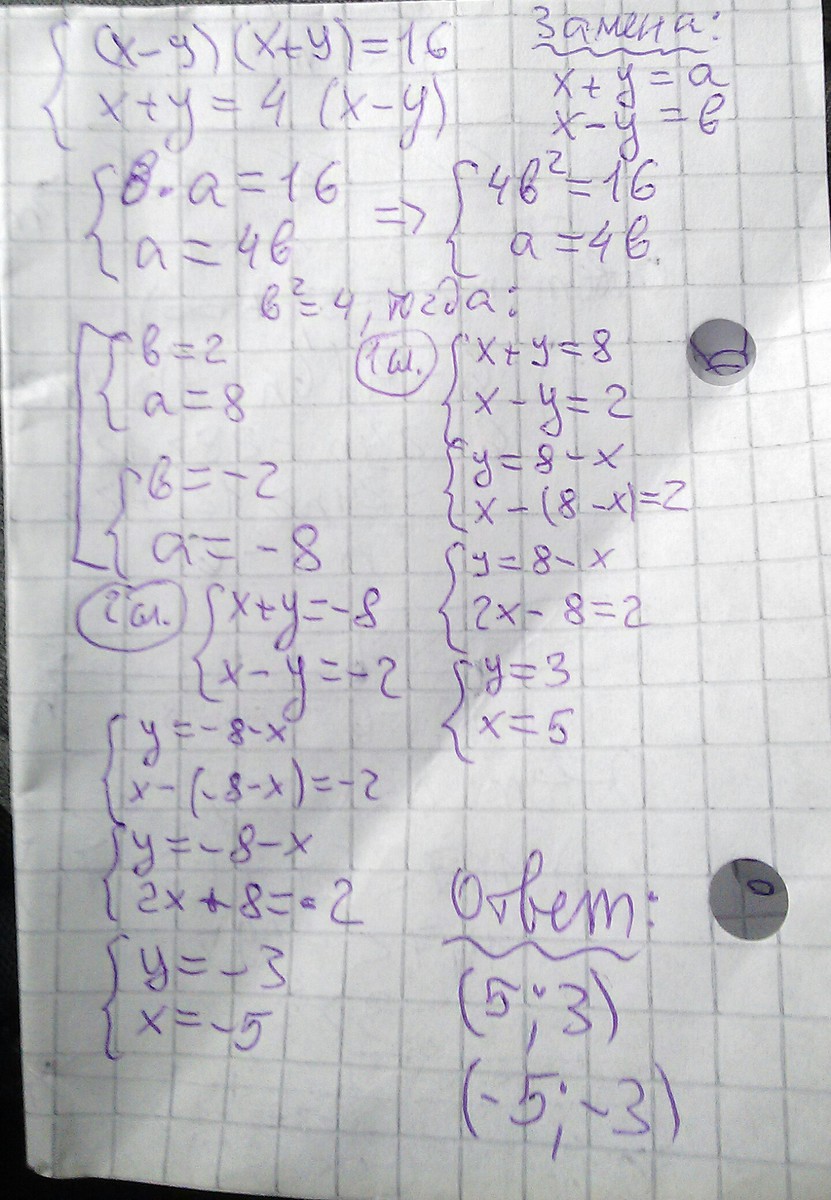 (x-y)(x+y)=16
x+y=4(x-y)
Замена:
x+y=a
x-y=в
в·a=16
a=4в
=>
4в²=16
a=4в
в²=4, тогда:
в=2
a=8
в=-2
a=-8
1 сл.
x+y=8
x-y=2
y=8-x
x-(8-x)=2
y=8-x
2x-8=2
y=3
x=5
2 сл.
x+y=-8
x-y=-2
y=-8-x
x-(-8-x)=-2
y=-8-x
2x+8=-2
y=-3
x=-5
Ответ:
(5;3)
(-5;-3)